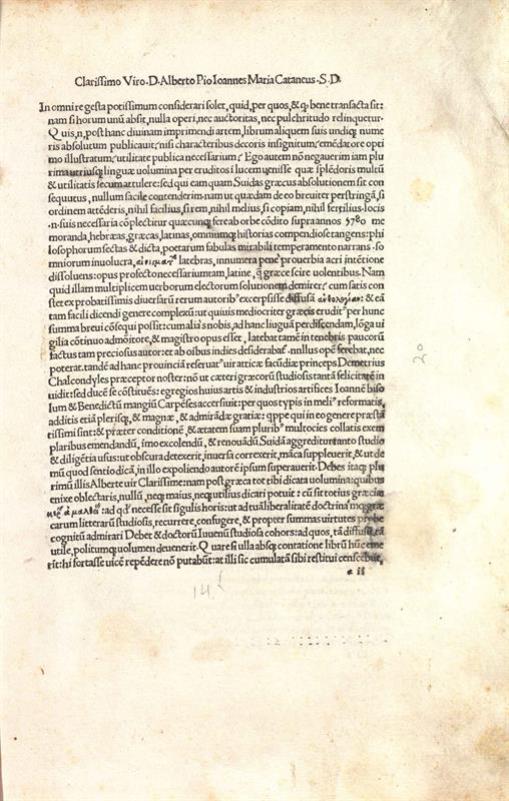 Clarissimo Viro.D.Alberto Pio Ioannes Maria Cataneus.S.D.
In omni re gesta potissimum considerari solet, quid, per quos, & q̃ bene transacta sit:
nam si horum unũ absit, nulla operi, nec auctoritas, nec pulchritudo relinquetur.
Quis,n,post hanc diuinam imprimendi artem, librum aliquem suis undiq; nume
ris absolutum publicauit, nisi characteribus decoris insignitum, emēdatore opti
mo illustratum, utilitate publica necessarium? Ego autem nō negauerim iam plu
rima utriusq; linguæ uolumina per eruditos ī lucem uenisse quæ splēdoris multū
& utilitatis secum attulere: sed qui eam quam Suidas græcus absolutionem sit con
sequutus, nullum facile contenderim. nam ut quædam de eo breuiter perstringā, si
ordinem attēderis, nihil facilius, si rem, nihil melius, si copiam, nihil fertilius. locis
.n.suis necessaria cōplectitur quæcunq; fere ab orbe cōdito supra annos 5780 me
moranda, hebræas, græcas, latinas, omniumq; historias compendiose tangens: phi
losophorum sectas & dicta, poetarum fabulas mirabili temperamento narrans. so
mniorum inuolucra, latebras, innumera pene prouerbia acri intētione
dissoluens: opus profecto necessarium tam, latine, q̃ græce scire uolentibus. Nam
quid illam multiplicem uerborum electorum solutionem demirer? cum satis con
stet ex probatissimis diuersarū rerum autorib' excerpsisse diffusā & eā
tam facili dicendi genere complexū: ut quiuis mediocriter græcis erudit' per hunc
summa breui cōsequi possit: cum alīs nobis, ad hanc linguā perdiscendam, lōga ui
gilia cōtinuo admōitore, & magistro opus esset, latebat tamē in tenebris paucorū
factus tam preciosus autor: et ab oībus indies desiderabaf. nullus opē ferebat, nec
poterat. tandē ad hanc prouinciā reseruat' uir atticæ facūdiæ princeps Demetrius
Chalcondyles præceptor noster: nō ut cæteri græcorū studiosis tantā felicitatē in
uidit: sed duce se cōstituēs: egregios huius artis & industrios artifices Ioannē biso
lum & Benedictū mangiū Carpēses accersiuit: per quos typis in meli' reformatis,
additis etiā plerisq;, & magnæ, & admirādæ gratiæ: qppe qui in eo genere præstā
tissimi sint: & præter conditionē, & ætatem suam plurib' multocies collatis exem
plaribus emendandū, īmo excolendū, & renouādū. Suidā aggreditur: tanto studio
& diligētia usus: ut obscura detexerit, inuersa correxerit, māca suppleuerit, & ut de
mū quod sentio dicā, in illo expoliendo autorē ipsum superauerit. Debes itaq; plu
rimū illis Alberte uir Clarissime: nam post græca tot tibi dicata uolumina: quibus
enixe oblectaris, nullū, neq; maius, neq; utilius dicari potuit: cū sit totius græciæ
ad qd' necesse sit sigulis horis: ut ad tuā liberalitatē doctrina græ
carum litterarū studiosis, recurrere, confugere, & propter summas uirtutes probe
cognitū admirari Debet & doctorū Iuuenū studiosa cohors: ad quos, tā diffusū, tā
utile, politumq; uolumen deuenerit. Quare si ulla absq; contatione librū hūc eme
rit: hi fortasse uicē repēdere nō putabūt: at illi sic cumulatā sibi restitui censebunt.
a ii